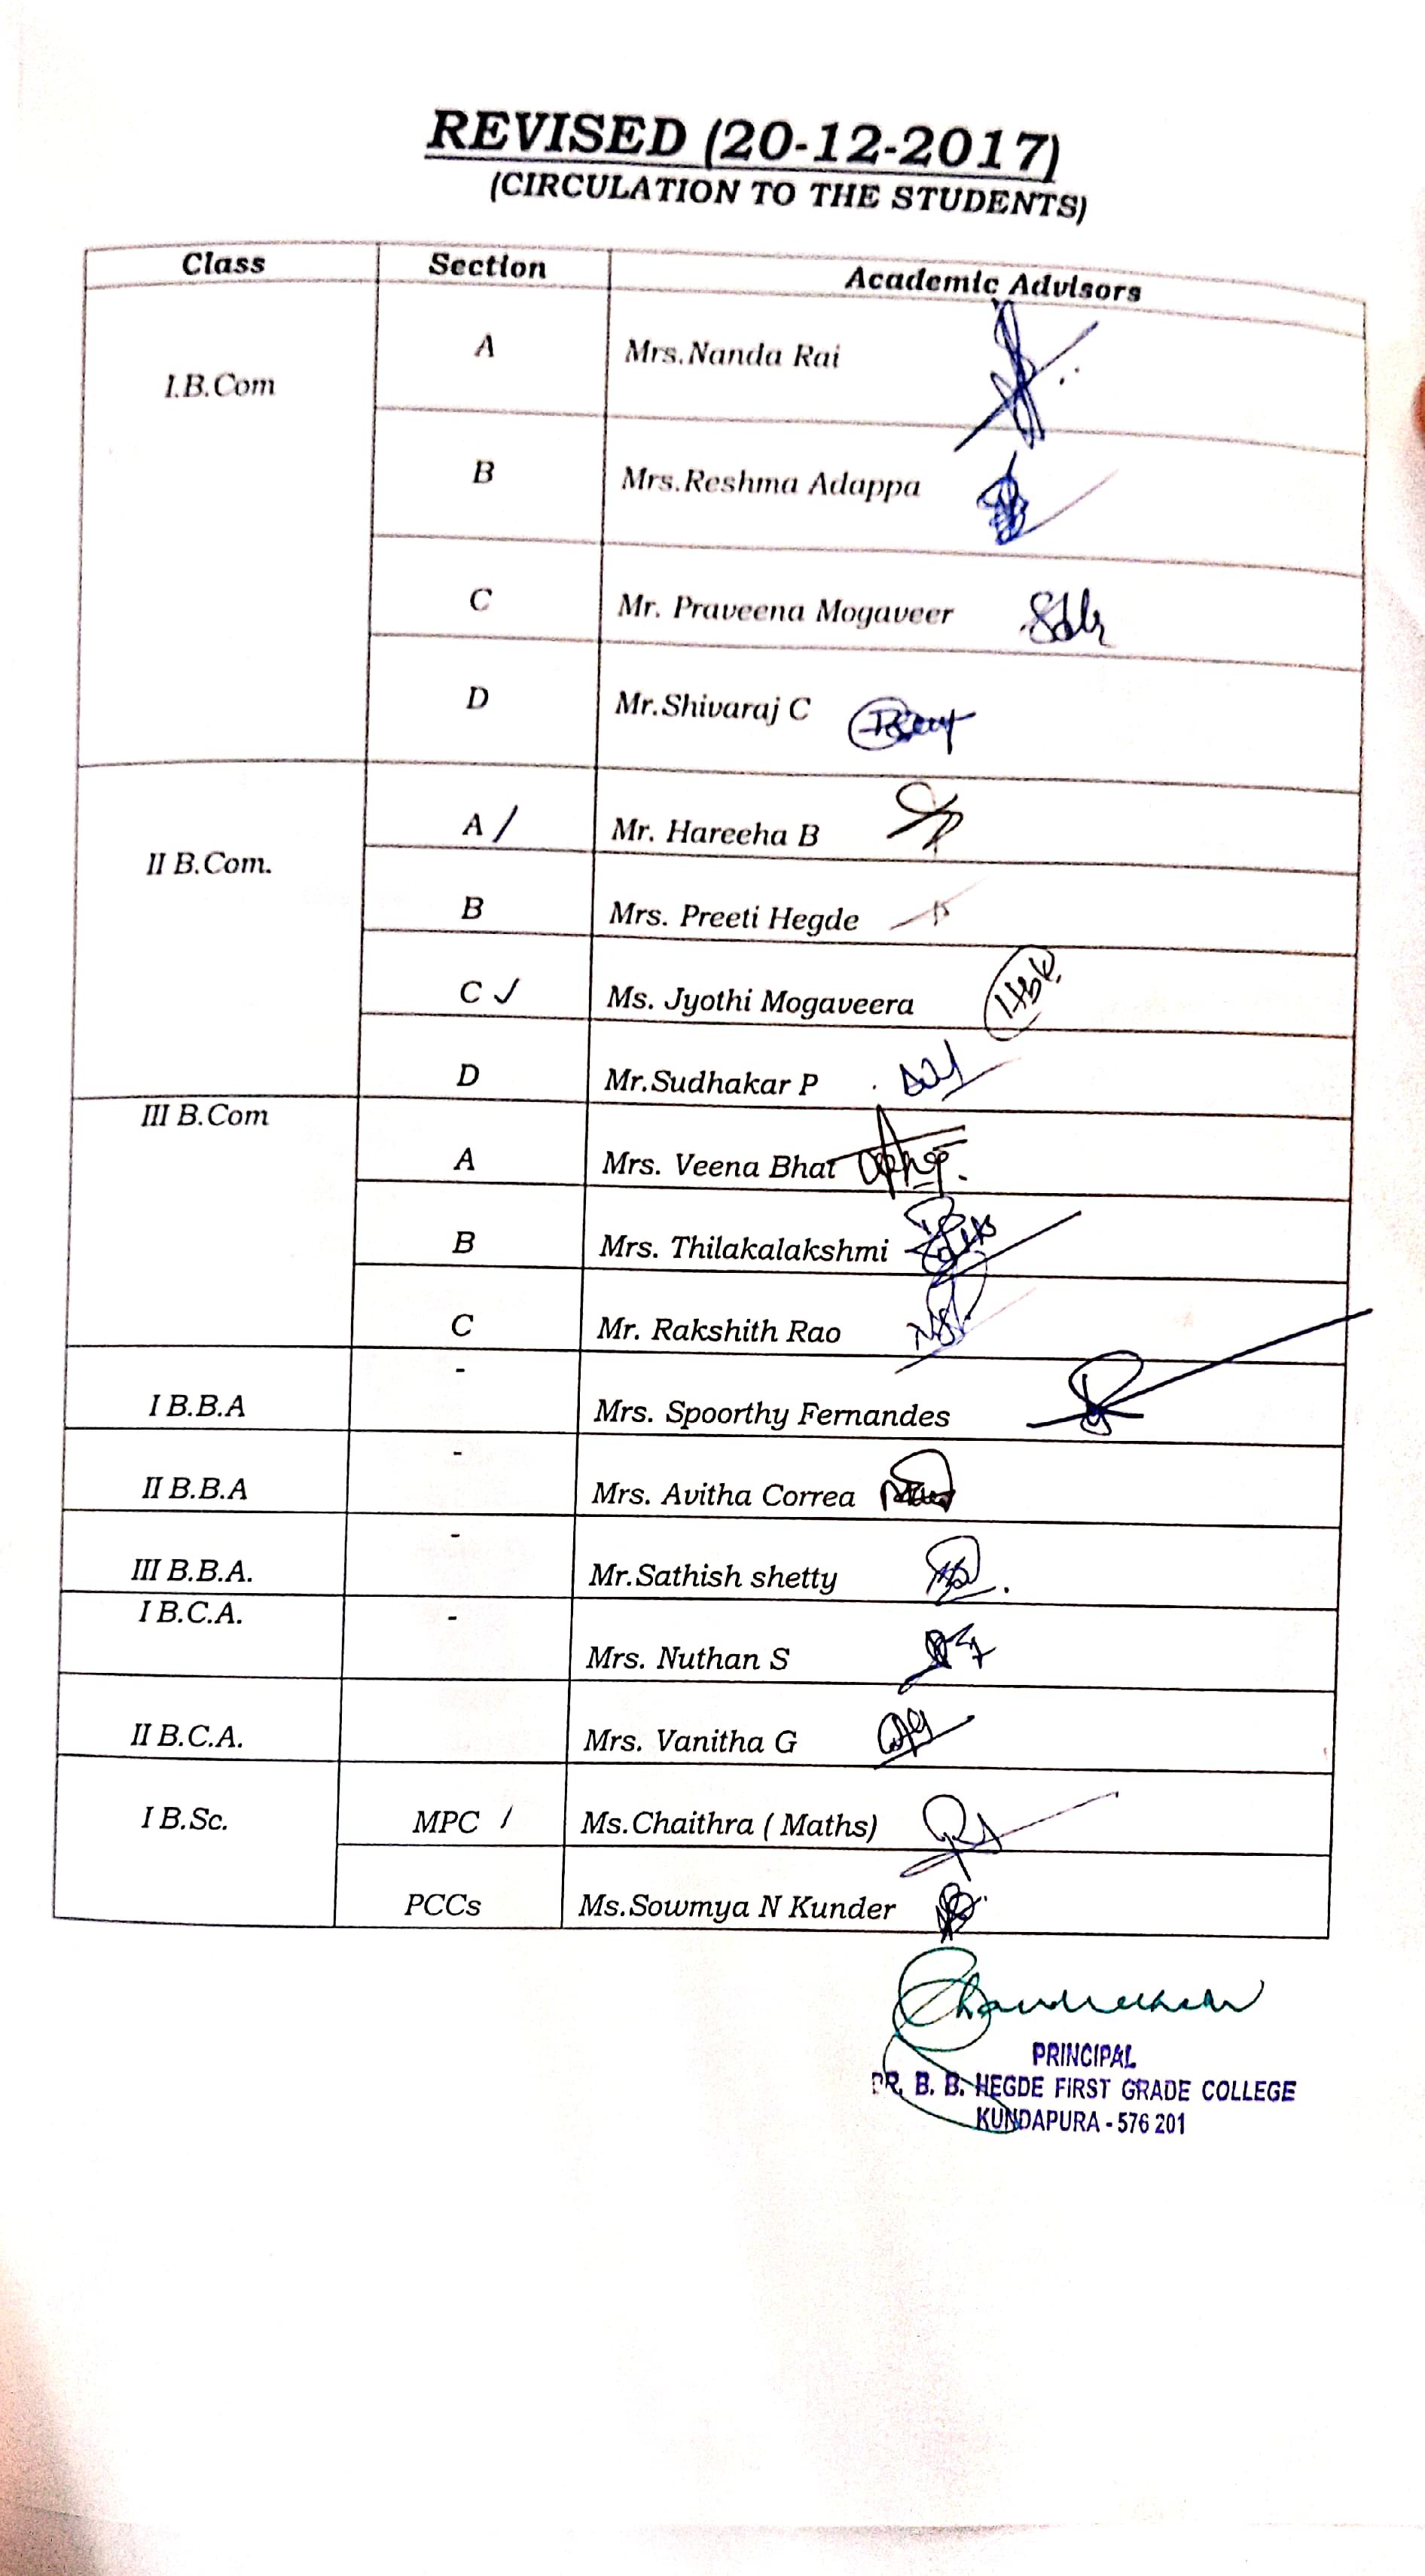 REVISED (20-12-2017)
(CIRCULATION TO THE STUDENTS)
Class Section Academic Advisors
I.B.Com A Mrs.Nanda Rai
B Mrs.Reshma Adappa
C Mr. Praveena Mogaveer
D Mr.Shivaraj C
II B.Com. A / Mr. Hareeha B
B Mrs. Preeti Hegde
C ✓ Ms. Jyothi Mogaveera
D Mr.Sudhakar P
III B.Com A Mrs. Veena Bhat
B Mrs. Thilakalakshmi
C Mr. Rakshith Rao
I B.B.A - Mrs. Spoorthy Fernandes
II B.B.A - Mrs. Avitha Correa
III B.B.A. - Mr.Sathish shetty
I B.C.A. - Mrs. Nuthan S
II B.C.A. Mrs. Vanitha G
I B.Sc. MPC / Ms.Chaithra ( Maths)
PCCs Ms.Sowmya N Kunder
PRINCIPAL
DR. B. B. HEGDE FIRST GRADE COLLEGE
KUNDAPURA - 576 201